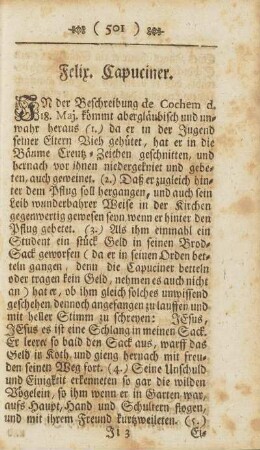 ( 501 )
Felix. Capuciner.
IN der Beschreibung de Cochem d.
18. Maj. kömmt abergläubisch und un-
wahr heraus (1.) da er in der Jugend
seiner Eltern Vieh gehütet, hat er in die
Bäume Creutz-Zeichen geschnitten, und
hernach vor ihnen niedergekniet und gebe-
ten, auch geweinet. (2.) Daß er zugleich hin-
ter dem Pflug soll hergangen, und auch sein
Leib wunderbahrer Weise in der Kirchen
gegenwertig gewesen seyn wenn er hinter den
Pflug gebetet. (3.) Als ihm einmahl ein
Student ein stück Geld in seinen Brod-
Sack geworffen ( da er in seinen Orden bet-
teln gangen, denn die Capuciner betteln
oder tragen kein Geld, nehmen es auch nicht
an ) hat er, ob ihm gleich solches unwissend
geschehen dennoch angefangen zu lauffen und
mit heller Stimm zu schreyen: JEsus,
JEsus es ist ein Schlang in meinen Sack.
Er leere so bald den Sack aus, warff das
Geld in Koth und gieng hernach mit freu-
den seinen Weg fort. (4.) Seine Unschuld
und Einigkeit erkenneten so gar die wilden
Vögelein, so ihm wenn er in Garten war,
aufs Haupt, Hand und Schultern flogen,
und mit ihrem Freund kurtzweileten. (5.)
Ji 3 Ei-